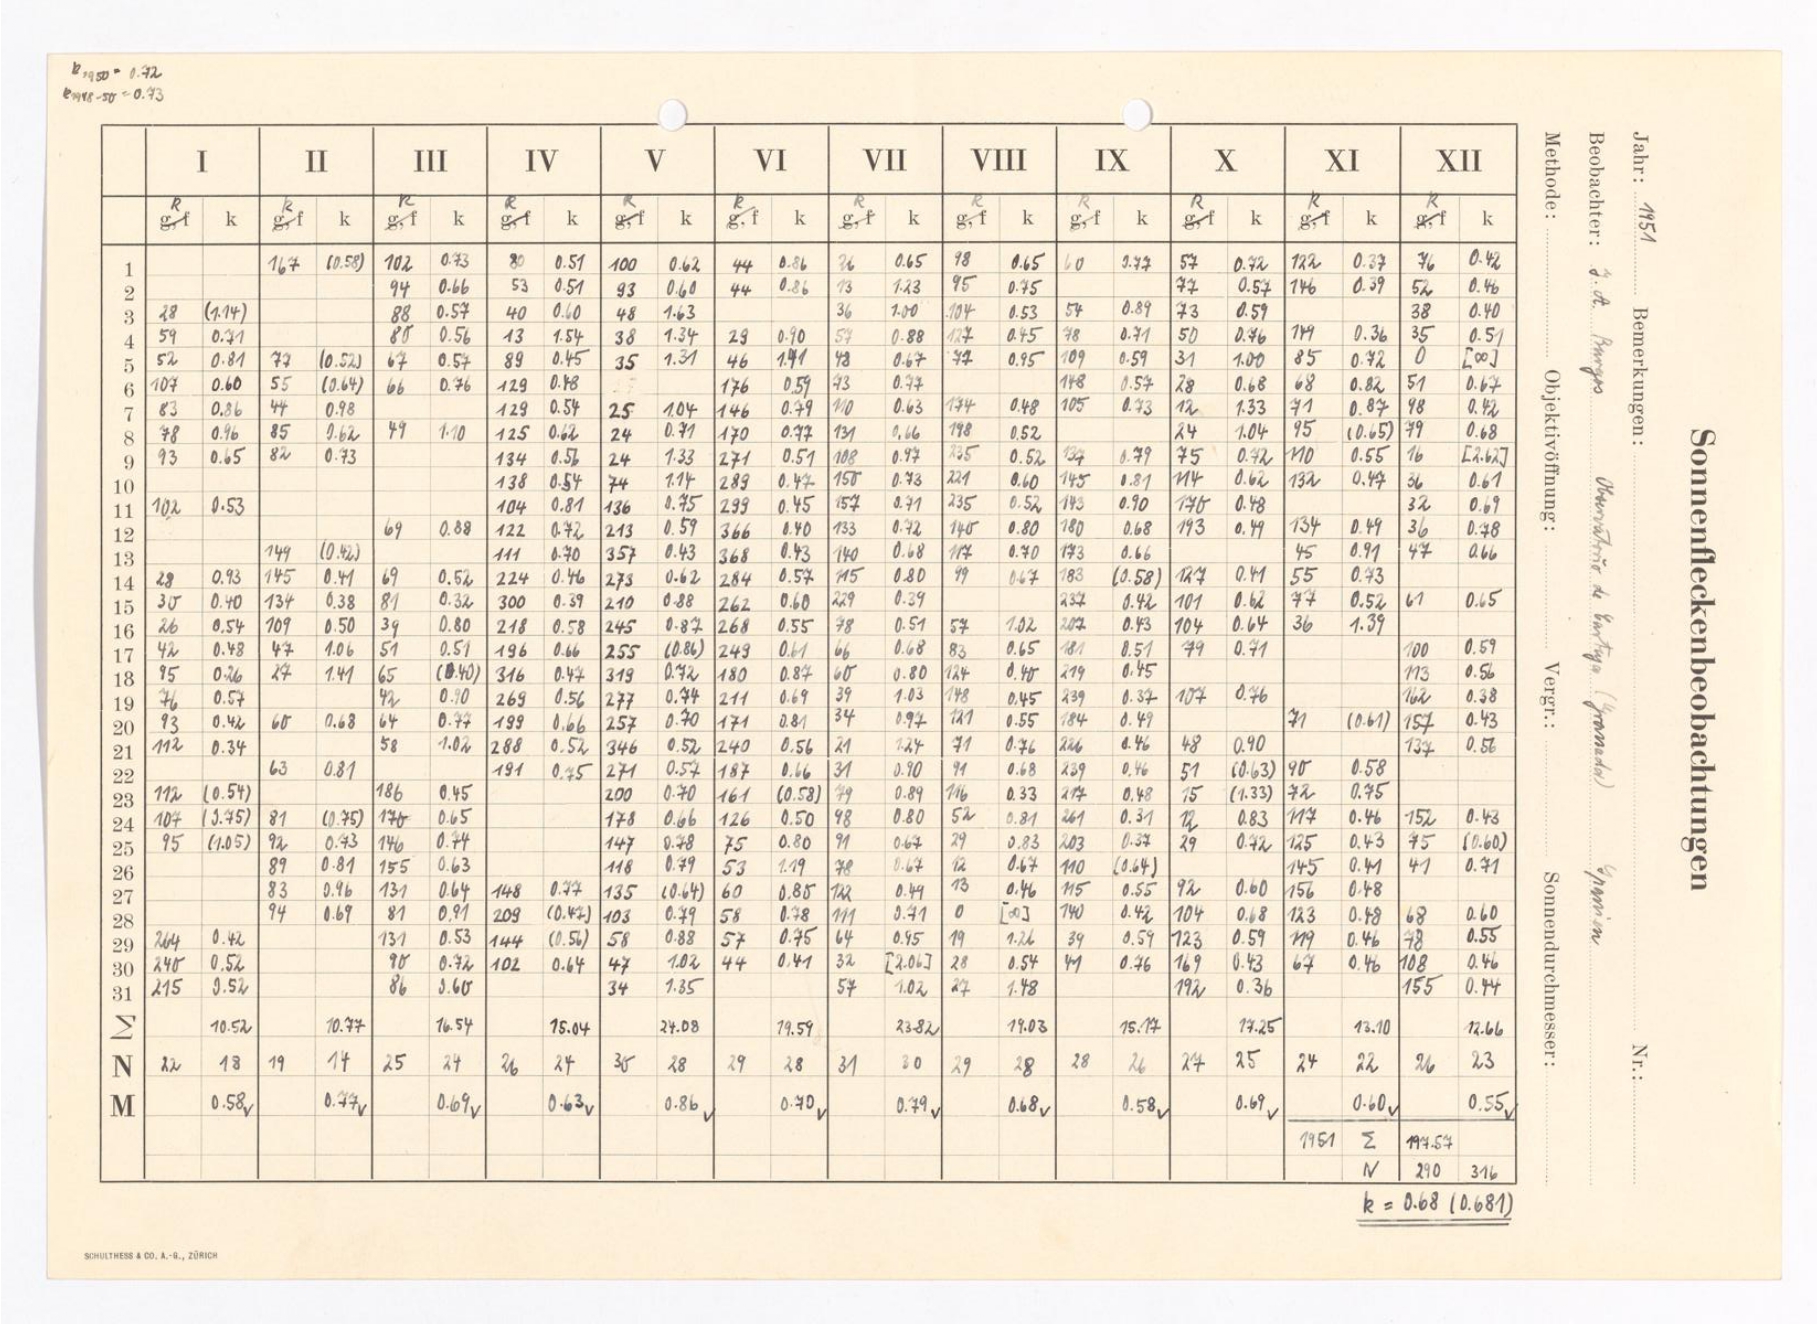 k1950 = 0.72
k1948-50 = 0.73
Sonnenfleckenbeobachtungen
Jahr: 1951 Bemerkungen: Nr.:
Beobachter: Observatorio de Cartuja (Granada) Spanien
Methode: Objektivöffnung: Vergr.: Sonnendurchmesser:
I II III IV V VI VII VIII IX X XI XII
R R R R R R R R R R R R
g,f k g,f k g,f k g,f k g,f k g,f k g,f k g,f k g,f k g,f k g,f k g,f k
1 167 (0.58) 102 0.73 80 0.51 100 0.62 44 0.86 26 0.65 98 0.65 60 0.77 57 0.72 122 0.37 76 0.42
2 94 0.66 53 0.51 93 0.60 44 0.86 13 1.23 95 0.75 77 0.57 146 0.39 52 0.46
3 28 (1.14) 88 0.57 40 0.60 48 1.63 36 1.00 104 0.53 54 0.89 73 0.59 38 0.40
4 59 0.71 80 0.56 13 1.54 38 1.34 29 0.90 57 0.88 127 0.45 78 0.71 50 0.76 149 0.36 35 0.51
5 52 0.81 77 (0.52) 67 0.57 89 0.45 35 1.31 46 1.41 48 0.67 77 0.95 109 0.59 31 1.00 85 0.72 0 [∞]
6 107 0.60 55 (0.64) 66 0.76 129 0.48 176 0.59 73 0.77 148 0.57 28 0.68 68 0.82 51 0.67
7 83 0.86 44 0.98 129 0.54 25 1.04 146 0.79 110 0.63 174 0.48 105 0.73 12 1.33 71 0.87 98 0.42
8 78 0.96 85 0.62 49 1.10 125 0.62 24 0.71 170 0.77 131 0.66 198 0.52 24 1.04 95 (0.65) 79 0.68
9 93 0.65 82 0.73 134 0.56 24 1.33 271 0.51 108 0.97 235 0.52 134 0.79 75 0.72 110 0.55 16 [2.62]
10 138 0.54 74 1.14 289 0.47 150 0.73 221 0.60 145 0.81 114 0.62 132 0.47 36 0.61
11 102 0.53 104 0.81 136 0.75 299 0.45 157 0.71 235 0.52 143 0.90 170 0.48 32 0.69
12 69 0.88 122 0.72 213 0.59 366 0.40 133 0.72 140 0.80 180 0.68 193 0.49 134 0.49 36 0.78
13 149 (0.42) 111 0.70 357 0.43 368 0.43 140 0.68 117 0.70 173 0.66 45 0.91 47 0.66
14 28 0.93 145 0.41 69 0.52 224 0.46 273 0.62 284 0.57 115 0.80 99 0.67 183 (0.58) 127 0.41 55 0.73
15 30 0.40 134 0.38 81 0.32 300 0.39 210 0.88 262 0.60 229 0.39 237 0.42 101 0.62 77 0.52 61 0.65
16 26 0.54 109 0.50 39 0.80 218 0.58 245 0.87 268 0.55 78 0.51 57 1.02 207 0.43 104 0.64 36 1.39
17 42 0.48 47 1.06 51 0.51 196 0.66 255 (0.86) 249 0.61 66 0.68 83 0.65 181 0.51 79 0.71 100 0.59
18 95 0.26 27 1.41 65 (0.40) 316 0.47 319 0.72 180 0.87 60 0.80 124 0.40 219 0.45 113 0.56
19 76 0.57 42 0.90 269 0.56 277 0.74 211 0.69 39 1.03 148 0.45 239 0.37 107 0.76 162 0.38
20 93 0.42 60 0.68 64 0.77 199 0.66 257 0.70 171 0.81 34 0.97 121 0.55 184 0.49 71 (0.61) 157 0.43
21 112 0.34 58 1.02 288 0.52 346 0.52 240 0.56 21 1.24 71 0.76 226 0.46 48 0.90 137 0.56
22 63 0.81 191 0.75 271 0.57 187 0.66 31 0.90 91 0.68 239 0.46 51 (0.63) 90 0.58
23 112 (0.54) 186 0.45 200 0.70 161 (0.58) 79 0.89 116 0.33 217 0.48 15 (1.33) 72 0.75
24 107 (0.75) 81 (0.75) 170 0.65 178 0.66 126 0.50 98 0.80 52 0.81 261 0.31 12 0.83 117 0.46 152 0.43
25 95 (1.05) 92 0.73 146 0.74 147 0.78 75 0.80 91 0.67 29 0.83 203 0.37 29 0.72 125 0.43 75 (0.60)
26 89 0.81 155 0.63 118 0.79 53 1.19 78 0.67 12 0.67 110 (0.64) 145 0.41 41 0.71
27 83 0.96 131 0.64 148 0.77 135 (0.64) 60 0.85 122 0.49 13 0.46 115 0.55 92 0.60 156 0.48
28 94 0.69 81 0.91 209 (0.47) 103 0.79 58 0.78 111 0.71 0 [∞] 140 0.42 104 0.68 123 0.48 68 0.60
29 264 0.42 131 0.53 144 (0.56) 58 0.88 57 0.75 64 0.95 19 1.26 39 0.59 123 0.59 119 0.46 78 0.55
30 240 0.52 90 0.72 102 0.64 47 1.02 44 0.41 32 [2.06] 28 0.54 41 0.76 169 0.43 67 0.46 108 0.46
31 215 0.52 86 0.60 34 1.35 57 1.02 27 1.48 192 0.36 155 0.44
Σ 10.52 10.77 16.54 15.04 24.08 19.59 23.82 19.03 15.17 17.25 13.10 12.66
N 22 18 19 14 25 24 26 24 30 28 29 28 31 30 29 28 28 26 27 25 24 22 26 23
M 0.58✓ 0.77✓ 0.69✓ 0.63✓ 0.86✓ 0.70✓ 0.79✓ 0.68✓ 0.58✓ 0.69✓ 0.60✓ 0.55✓
1951 Σ 197.57
N 290 316
k = 0.68 (0.681)
SCHULTHESS & CO. A.-G., ZÜRICH